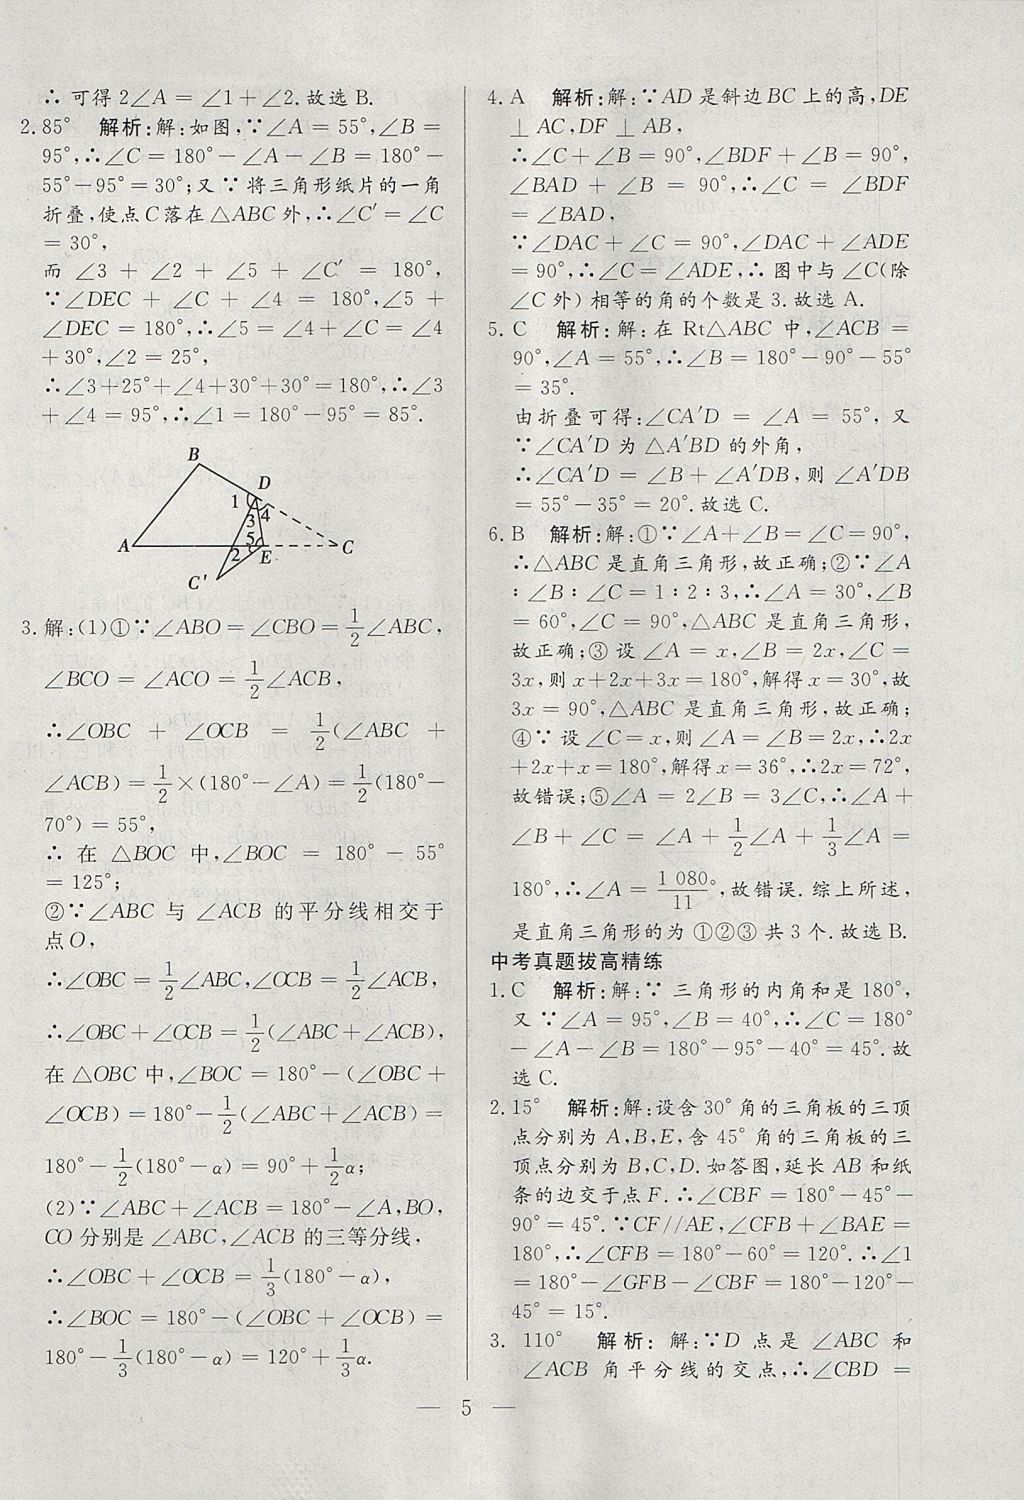 ∴ 可得 2∠A = ∠1+∠2.故选 B.
2. 85° 解析:解:如图,∵∠A = 55°,∠B =
95°,∴∠C = 180°-∠A-∠B = 180°-
55°-95°= 30°;又 ∵ 将三角形纸片的一角
折叠,使点 C 落在 △ABC 外,∴∠C′ = ∠C
= 30°,
而 ∠3 + ∠2 + ∠5 + ∠C′ = 180°,
∵∠DEC + ∠C + ∠4 = 180°,∠5 +
∠DEC = 180°,∴∠5 = ∠4+∠C = ∠4
+30°,∠2 = 25°,
∴∠3+25°+∠4+30°+30°= 180°,∴∠3
+∠4 = 95°,∴∠1 = 180°-95°= 85°.
B
D
1
4
3
5
A
2
E
C
C′
3. 解:(1)①∵∠ABO=∠CBO=1/2∠ABC,
∠BCO = ∠ACO = 1/2∠ACB,
∴∠OBC + ∠OCB = 1/2(∠ABC +
∠ACB) = 1/2×(180°-∠A) = 1/2(180°-
70°) = 55°,
∴ 在 △BOC 中,∠BOC = 180° - 55°
= 125°;
②∵∠ABC 与 ∠ACB 的平分线相交于
点 O,
∴∠OBC = 1/2∠ABC,∠OCB = 1/2∠ACB,
∴∠OBC+∠OCB = 1/2(∠ABC+∠ACB),
在 △OBC 中,∠BOC = 180°-(∠OBC+
∠OCB) = 180°-1/2(∠ABC+∠ACB) =
180°-1/2(180°-α) = 90°+1/2α;
(2)∵∠ABC+∠ACB = 180°-∠A,BO,
CO 分别是 ∠ABC,∠ACB 的三等分线,
∴∠OBC+∠OCB = 1/3(180°-α),
∴∠BOC = 180°-(∠OBC+∠OCB) =
180°-1/3(180°-α) = 120°+1/3α.
4. A 解析:解:∵AD 是斜边 BC 上的高,DE
⊥ AC,DF ⊥ AB,
∴∠C+∠B = 90°,∠BDF+∠B = 90°,
∠BAD + ∠B = 90°,∴∠C = ∠BDF
= ∠BAD,
∵∠DAC+∠C = 90°,∠DAC+∠ADE
= 90°,∴∠C = ∠ADE,∴ 图中与 ∠C(除
∠C 外) 相等的角的个数是 3.故选 A.
5. C 解析:解:在 Rt△ABC 中,∠ACB =
90°,∠A = 55°,∴∠B = 180°-90°-55°
= 35°.
由折叠可得:∠CA′D = ∠A = 55°,又
∵∠CA′D 为 △A′BD 的外角,
∴∠CA′D = ∠B+∠A′DB,则 ∠A′DB
= 55°-35°= 20°.故选 C.
6. B 解析:解:①∵∠A+∠B=∠C=90°,
∴△ABC 是直角三角形,故正确;②∵∠A
∶∠B∶∠C = 1∶2∶3,∴∠A = 30°,∠B
= 60°,∠C = 90°,△ABC 是直角三角形,
故正确;③ 设 ∠A = x,∠B = 2x,∠C =
3x,则 x+2x+3x = 180°,解得 x = 30°,故
3x = 90°,△ABC 是直角三角形,故正确;
④∵ 设 ∠C = x,则 ∠A = ∠B = 2x,∴2x
+2x+x = 180°,解得 x = 36°,∴2x = 72°,
故错误;⑤∠A = 2∠B = 3∠C,∴∠A+
∠B + ∠C = ∠A + 1/2∠A + 1/3∠A =
180°,∴∠A = 1 080°/11,故错误. 综上所述,
是直角三角形的为 ①②③ 共 3 个.故选 B.
中考真题拔高精练
1. C 解析:解:∵ 三角形的内角和是 180°,
又 ∵∠A = 95°,∠B = 40°,∴∠C = 180°
-∠A-∠B = 180°-95°-40°= 45°.故
选 C.
2. 15° 解析:解:设含 30°角的三角板的三顶
点分别为 A,B,E,含 45°角的三角板的三
顶点分别为 B,C,D. 如答图,延长 AB 和纸
条的边交于点 F.∴∠CBF = 180°-45°-
90°= 45°.∵CF//AE,∠CFB+∠BAE =
180°,∴∠CFB = 180°-60°= 120°.∴∠1
= 180°-∠GFB-∠CBF = 180°-120°-
45°= 15°.
3. 110° 解析: 解:∵D 点是 ∠ABC 和
∠ACB 角平分线的交点,∴∠CBD =
— 5 —